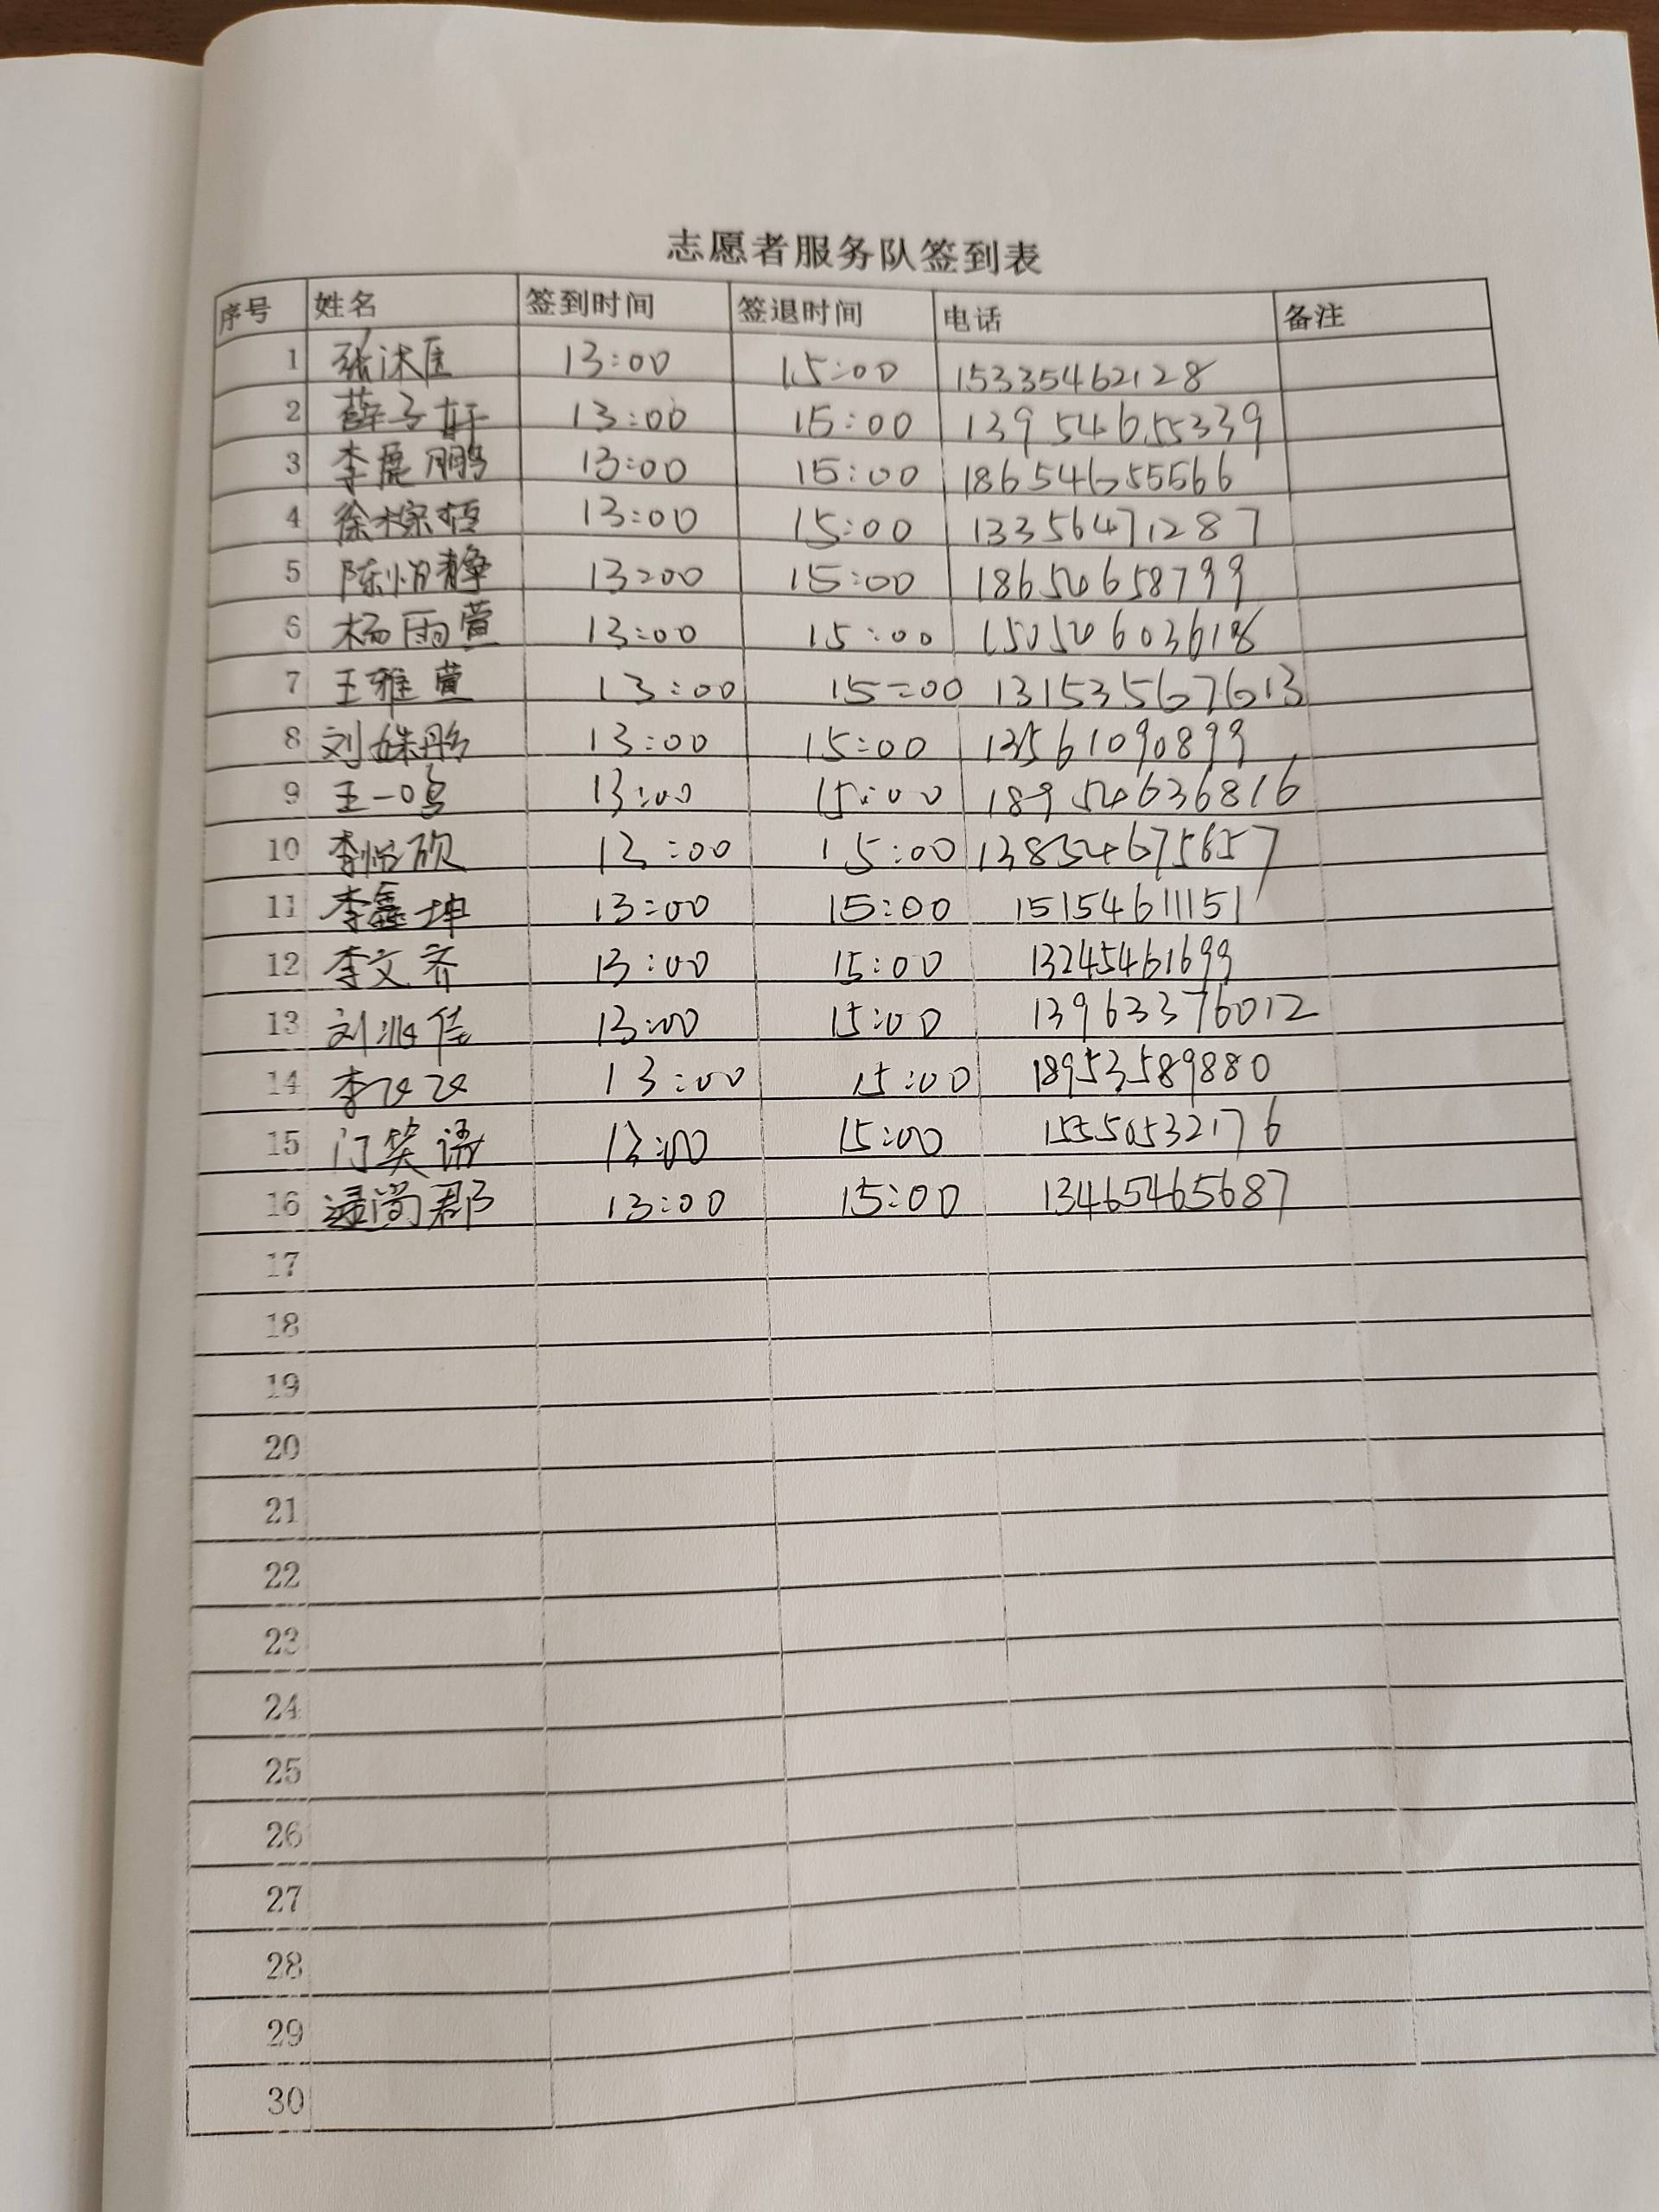 志愿者服务队签到表
序号 姓名 签到时间 签退时间 电话 备注
1 张沐匡 13:00 15:00 15335462128
2 薛子轩 13:00 15:00 13954655339
3 李鹿鹏 13:00 15:00 18654655566
4 徐樑恒 13:00 15:00 13356471287
5 陈怡静 13:00 15:00 18654658799
6 杨雨萱 13:00 15:00 15054603618
7 王雅萱 13:00 15:00 13153567613
8 刘姝彤 13:00 15:00 13561090899
9 王一鸣 13:00 15:00 18954636816
10 李怡砚 13:00 15:00 13854675657
11 李鑫坤 13:00 15:00 15154611151
12 李文齐 13:00 15:00 13245461699
13 刘兆佳 13:00 15:00 13963376012
14 李 13:00 15:00 18953589880
15 门笑语 13:00 15:00 15550532176
16 逯尚郡 13:00 15:00 13465465687
17
18
19
20
21
22
23
24
25
26
27
28
29
30